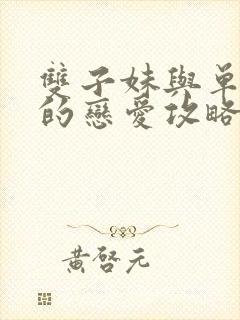 雙子妹與單
的戀愛攻略
黃啓元